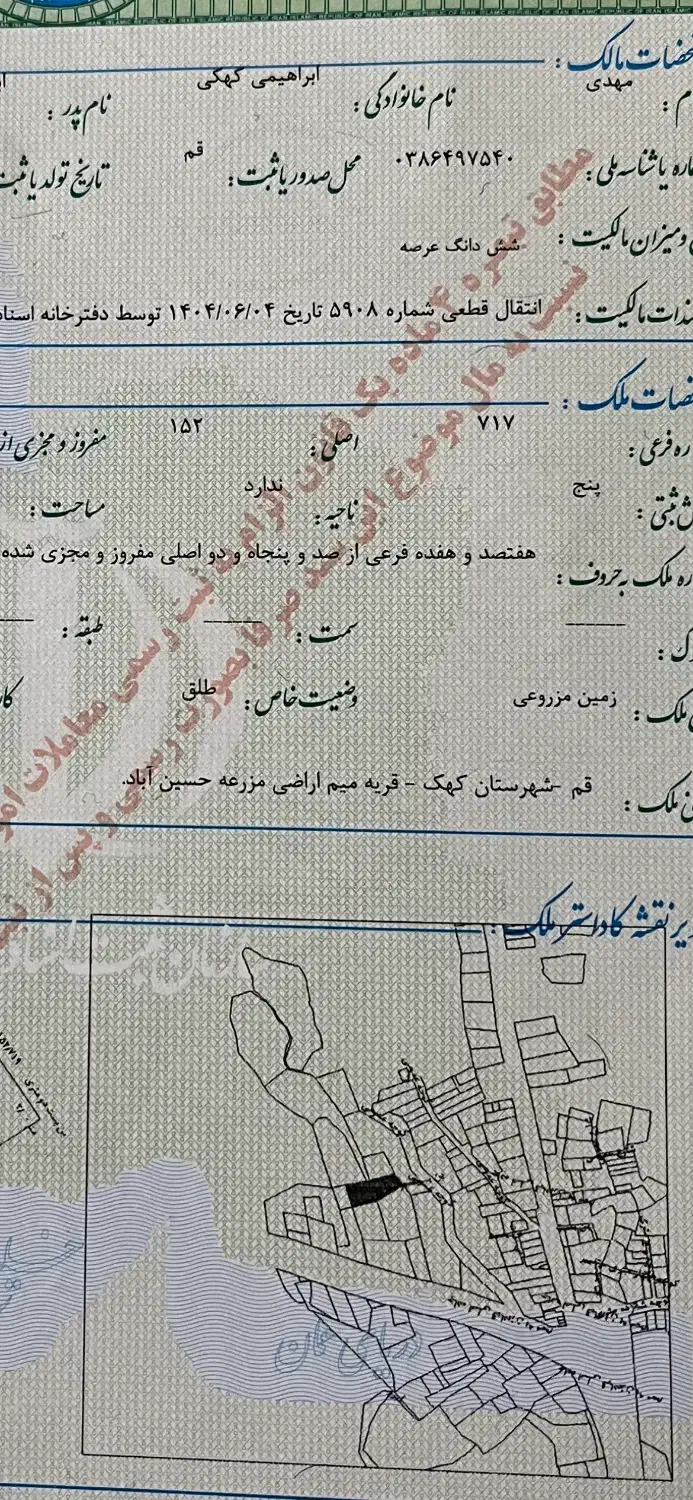 خصات مالک :
م : مهدی نام خانوادگی : ابراهیمی کهکی نام پدر :
اره یا شناسه ملی : ۰۳۸۶۴۹۷۵۴۰ محل صدور یا ثبت : قم تاریخ تولد یا ثبت
و میزان مالکیت : شش دانگ عرصه
ندات مالکیت : انتقال قطعی شماره ۵۹۰۸ تاریخ ۱۴۰۴/۰۶/۰۴ توسط دفترخانه اسناد
خصات ملک :
اره فرعی : ۷۱۷ اصلی : ۱۵۲ مفروز و مجزی از
ش ثبتی : پنج ناحیه : ندارد مساحت :
اره ملک به حروف : هفتصد و هفده فرعی از صد و پنجاه و دو اصلی مفروز و مجزی شده
ک : سمت : طبقه :
ملک : زمین مزروعی وضعیت خاص : طلق کا
نی ملک : قم -شهرستان کهک - قریه میم اراضی مزرعه حسین آباد.
مطابق تبصره ۴ ماده یک قانون الزام به ثبت رسمی معاملات امو
نسبت به مال موضوع این سند صرفا بصورت رسمی و پس از ثب
یر نقشه کاداستر ملک :